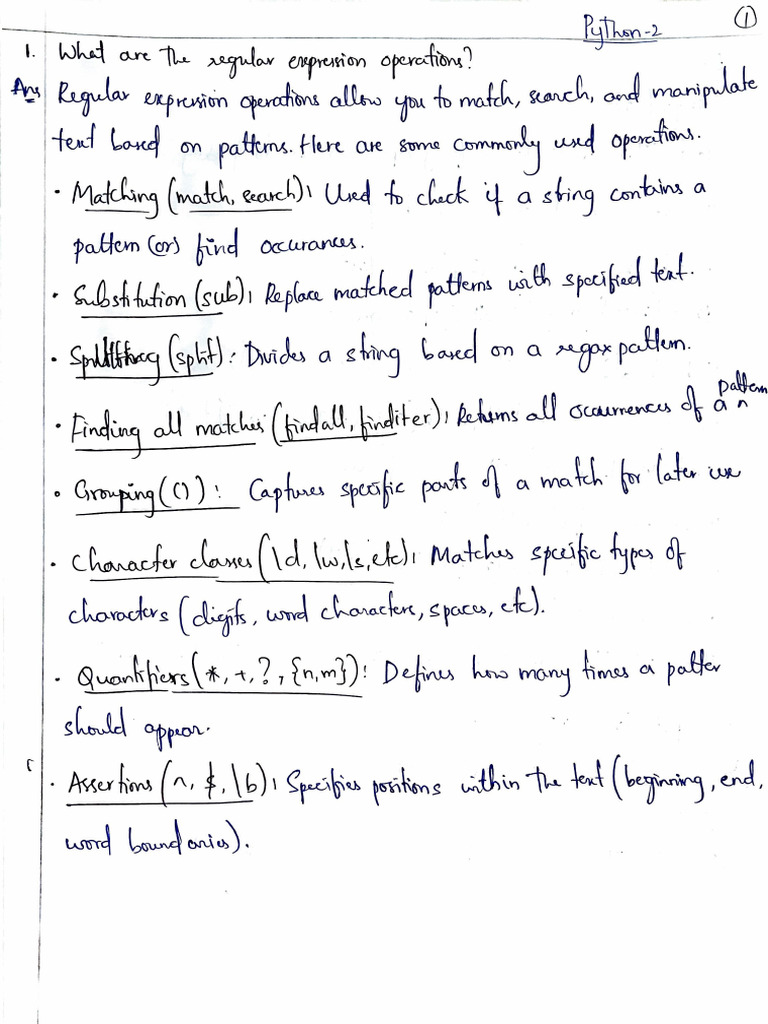 Python-2 1
1. What are the regular expression operations?
Ans Regular expression operations allow you to match, search, and manipulate
text based on patterns. Here are some commonly used operations.
• Matching (match, search): Used to check if a string contains a
pattern (or) find occurances.
• Substitution (sub): Replace matched patterns with specified text.
• Splitting (split): Divides a string based on a regax pattern.
pattern
• Finding all matches (findall, finditer): Returns all occurrences of a ^
• Grouping ( () ): Captures specific parts of a match for later use
• Character classes (\d, \w, \s, etc): Matches specific types of
characters (digits, word characters, spaces, etc).
• Quantifiers (*, +, ?, {n,m}): Defines how many times a patter
should appear.
• Assertions (^, $, \b): Specifies positions within the text (beginning, end,
word boundaries).